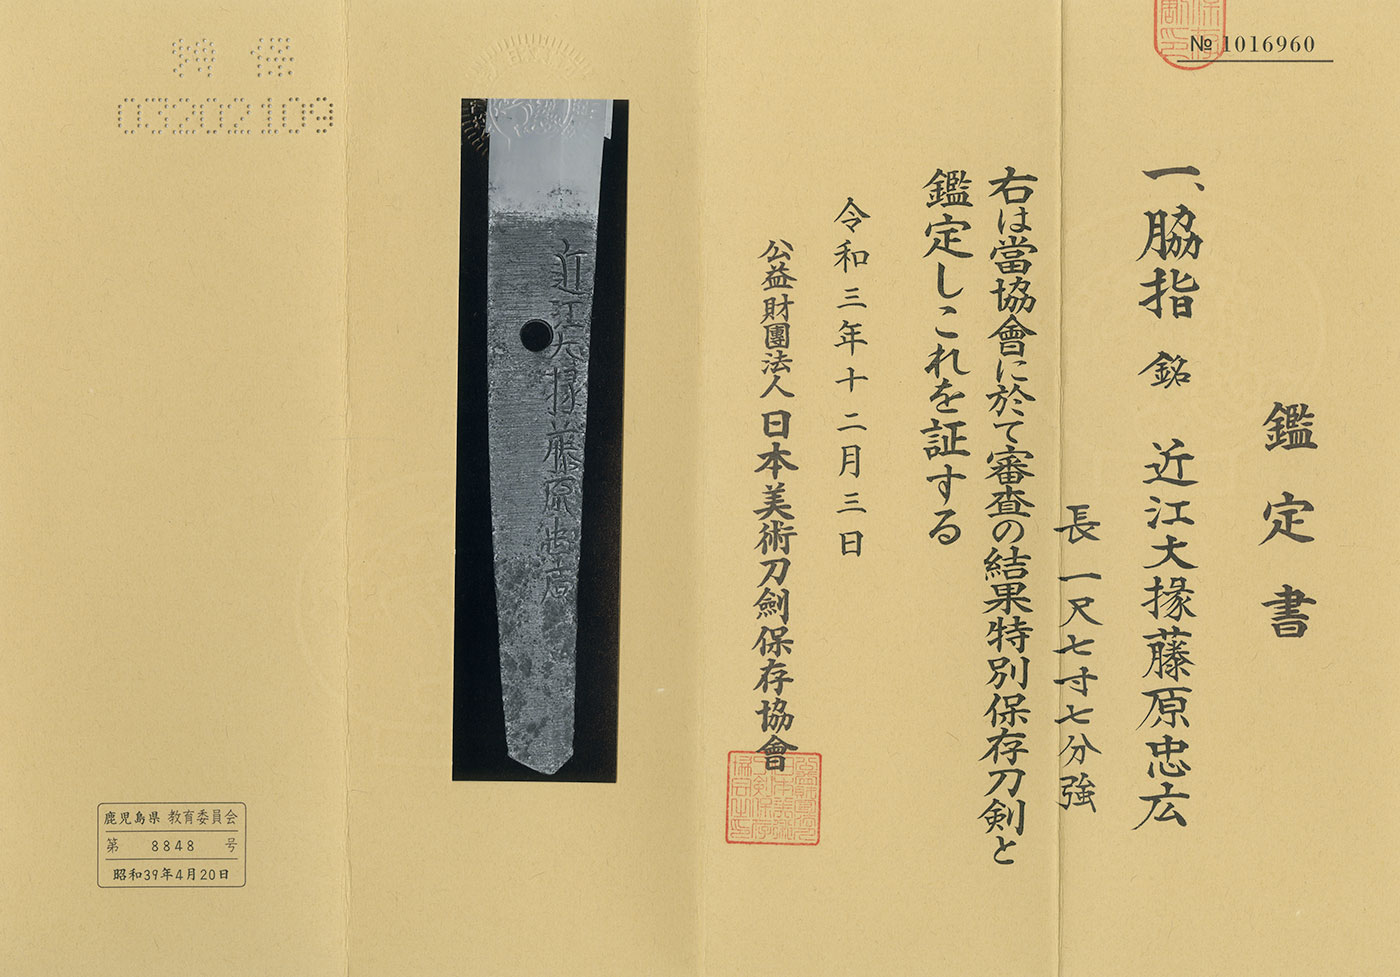 № 1016960
鑑定書
一、脇指 銘 近江大掾藤原忠広
長 一尺七寸七分強
右は當協會に於て審査の結果特別保存刀剣と
鑑定しこれを証する
令和三年十二月三日
公益財團法人 日本美術刀劍保存協會
近江大掾藤原忠広
特保
03202109
鹿児島県 教育委員会
第 8848 号
昭和39年4月20日